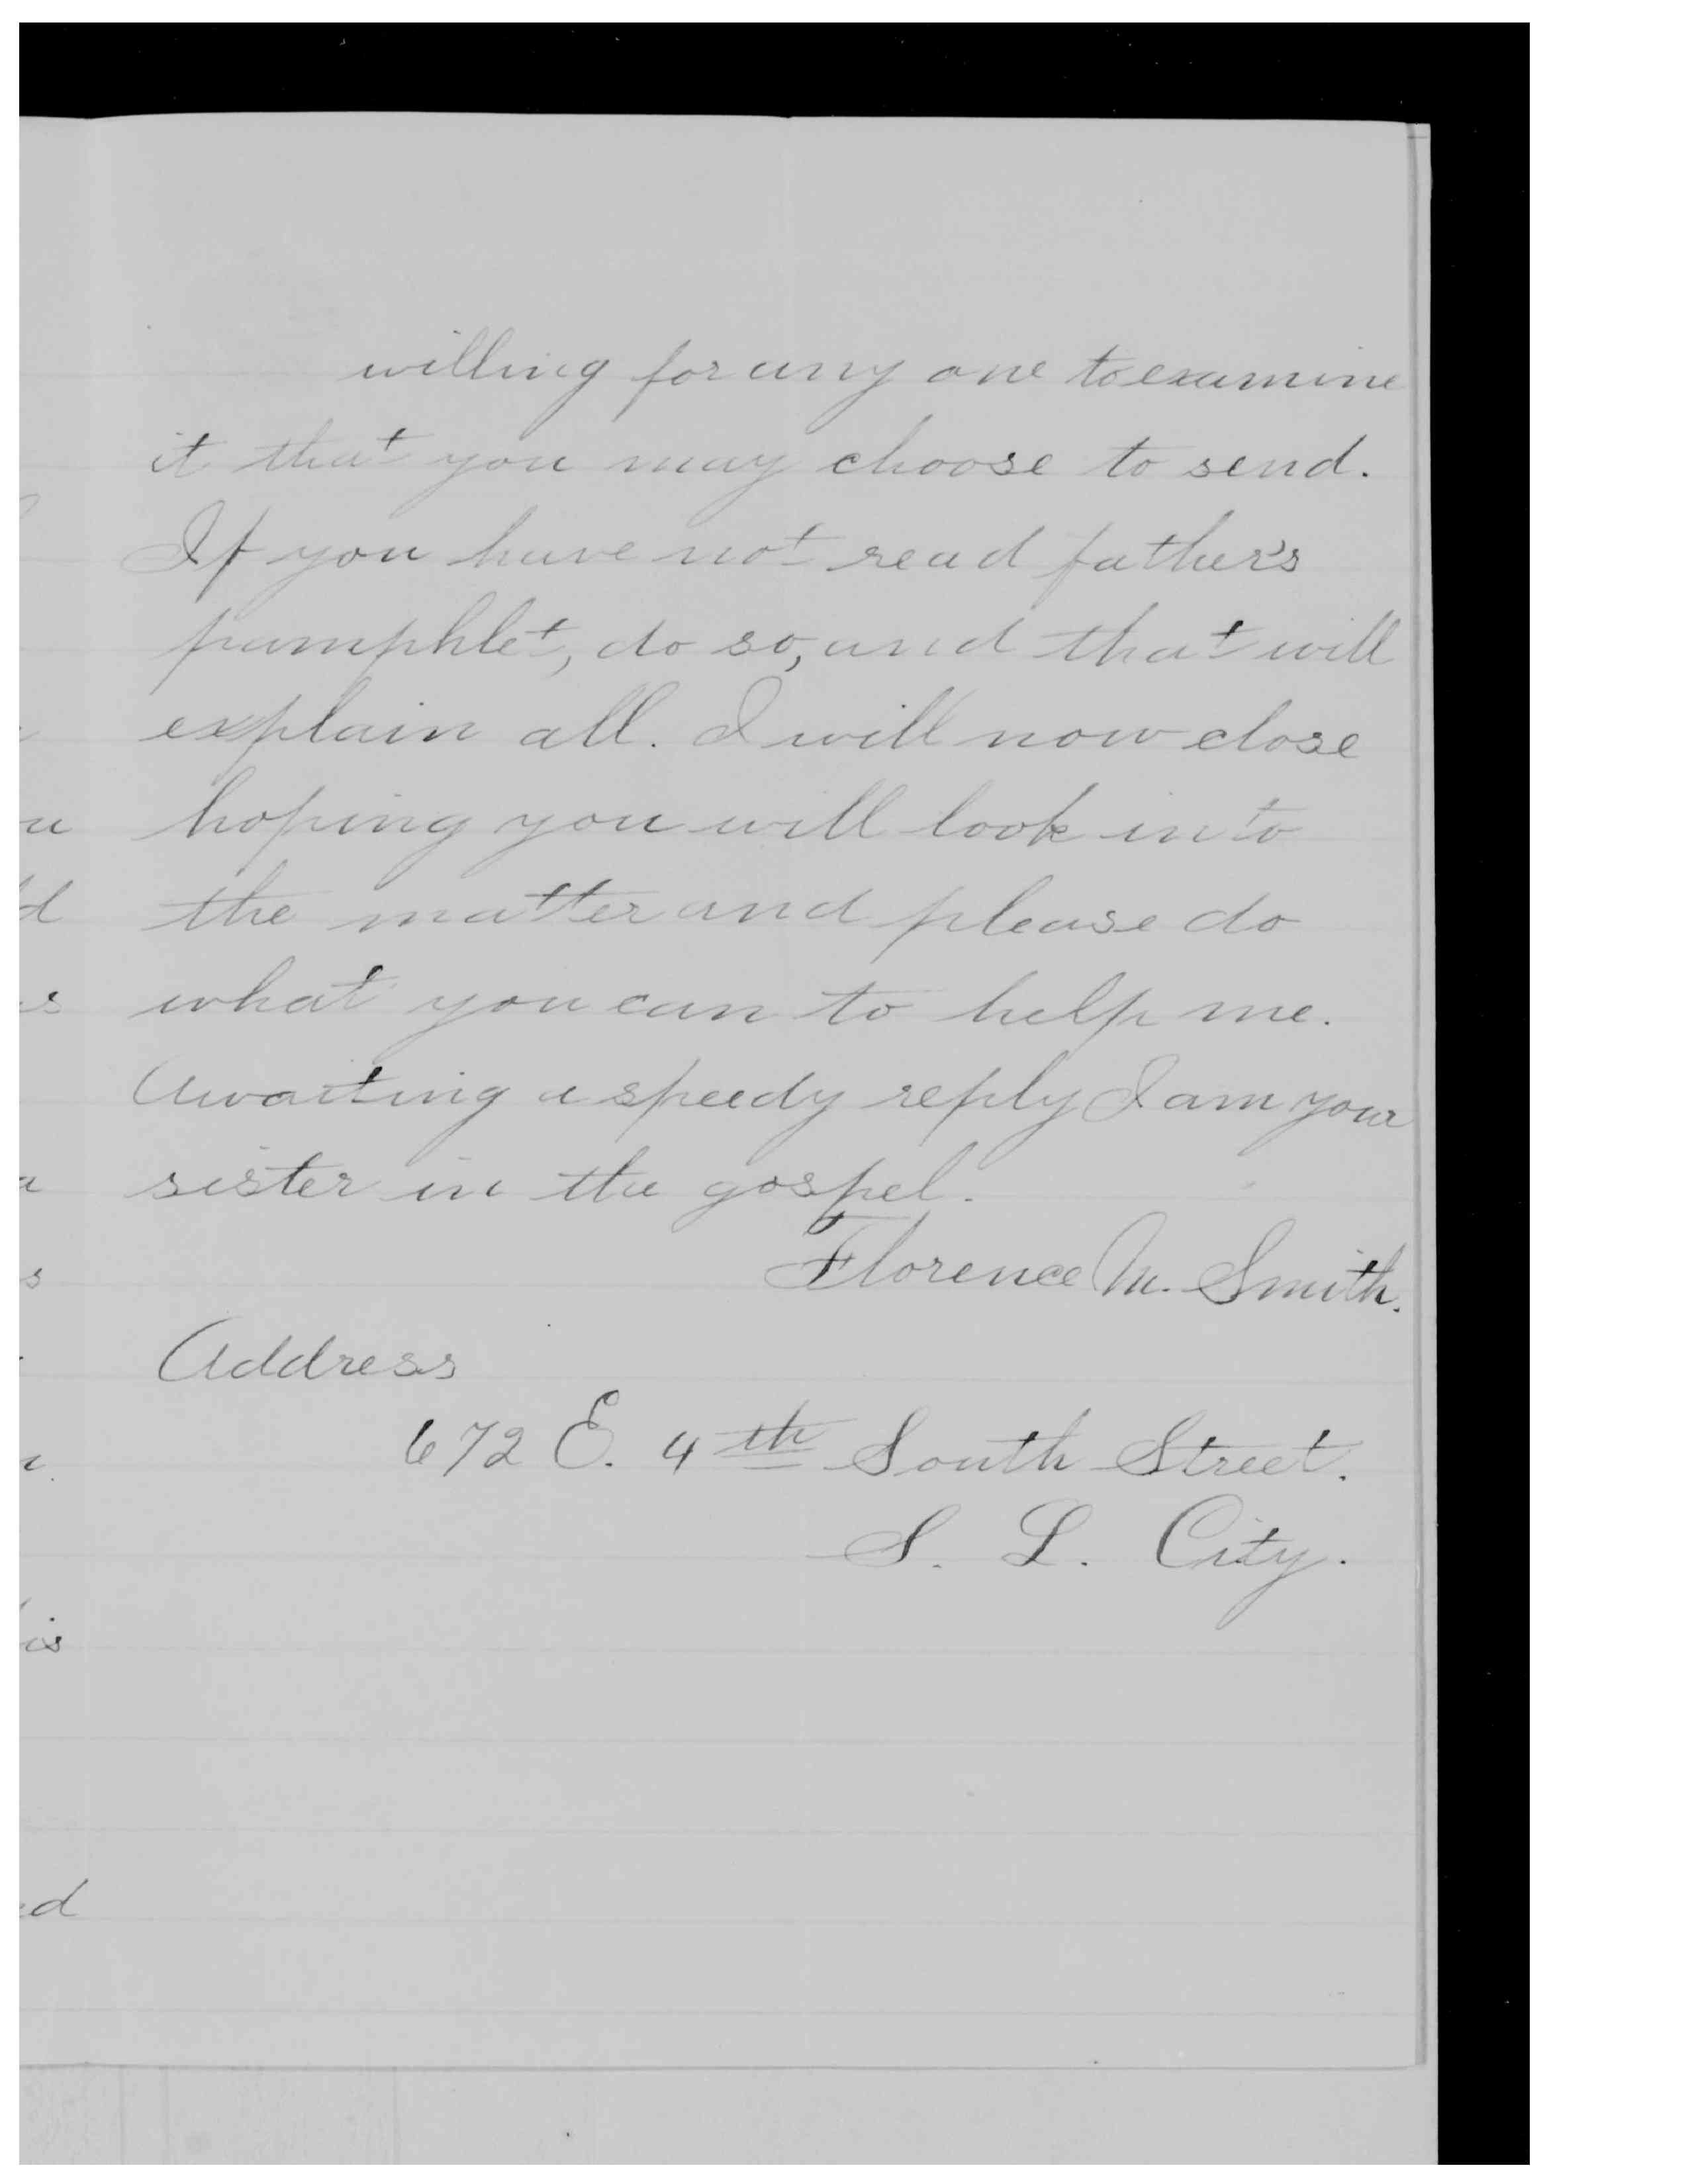 willing for any one to examine
it that you may choose to send.
If you have not read father's
pamphlet, do so, and that will
explain all. I will now close
hoping you will look into
the matter and please do
what you can to help me.
Awaiting a speedy reply I am your
sister in the gospel.
Florence M. Smith.
Address
672 E. 4th South Street.
S. L. City.